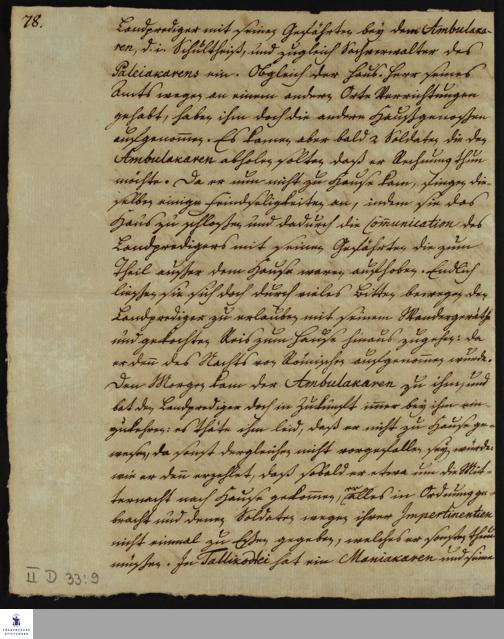 78.
Landprediger mit seinen Gefährten bey dem Ambulaka-
ren, d. i. Schultheiß, und zugleich Sachverwalter des
Pateiakarens ein. Obgleich der Haus-Herr seines
Amts wegen an einem andern Orte Verrichtungen
gehabt, haben ihn doch die andere Haußgenoßen
aufgenommen. Es kamen aber bald 2 Soldaten die den
Ambulakaren abholen solten daß er Rechnung thun
möchte. Da er nun nicht zu Hause kam, fingen die-
selben einige Feindseligkeiten an, indem sie das
Haus zu schloßen und dadurch die Communication des
Landpredigers mit seinen Gefährten die zum
Theil ausser dem Hause waren aufhoben. Endlich
liessen sie sich doch durch vieles Bitten bewegen den
Landprediger zu erlauben mit seinem Wandergeräthe
und gekochten Reis zum Hause hinaus zugehen: da
er denn des Nachts von Römischen aufgenommen wurde.
Den Morgen kam der Ambulakaren zu ihm, und
bat den Landprediger doch in Zukunft immer bey ihm ein-
zukehren: es thäte ihm leid, daß er nicht zu Hause ge-
wesen, da sonst dergleichen nicht vorgefallen seyn würde:
wie er denn erzehlet, daß sobald er etwa um die Mit-
ternacht nach Hause gekommen, er alles in Ordnung ge-
bracht und denen Soldaten wegen ihrer Impertinentien
nicht einmal zu Eßen gegeben, welches er sonsten thun
müssen. In Tallikodei hat ein Maniakaren und seine
II D 33:9
FRANCKESCHE
STIFTUNGEN